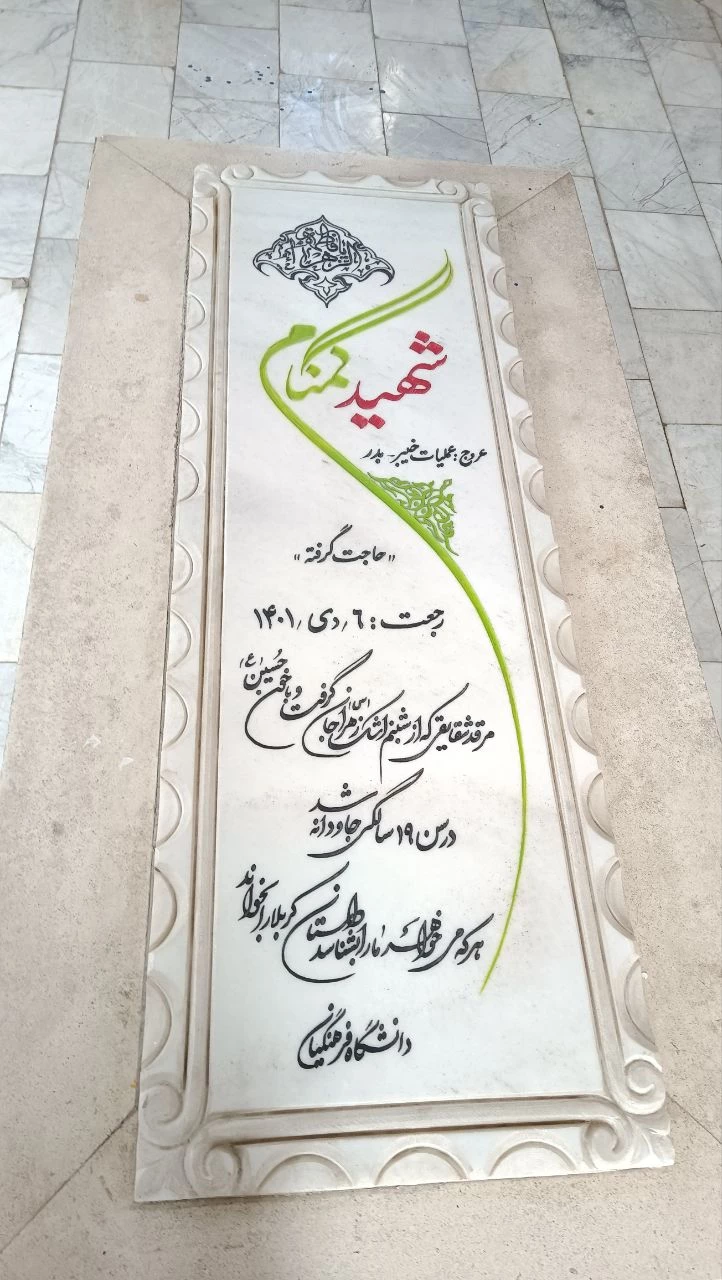 یا فاطمة الزهراء
شهید گمنام
عروج : عملیات خیبر - بدر
"حاجت گرفته"
رجعت : ۶ / دی / ۱۴۰۱
مرقد شقایقی که از شبنم اشک زهرا (س) جان گرفت و با خون حسین (ع)
در سن ۱۹ سالگی جاودانه شد
هر که می خواهد ما را بشناسد داستان کربلا را بخواند
دانشگاه فرهنگیان